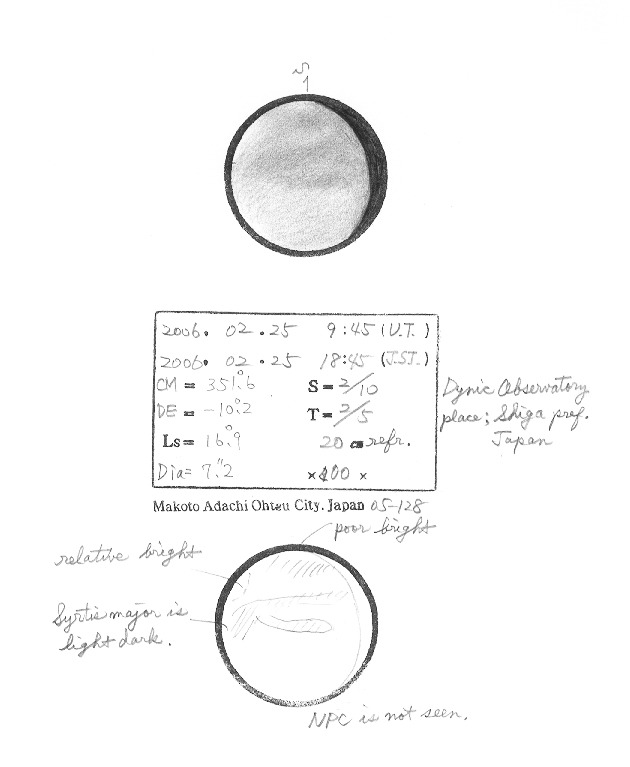 S
2006. 02. 25 9:45 (U.T.)
2006. 02. 25 18:45 (J.S.T.)
CM = 351.°6 S = 2/10
DE = -10.°2 T = 2/5
Ls = 16.°9 20 cm refr.
Dia = 7."2 ×400 ×
Dynic Observatory
place; Shiga pref.
Japan
Makoto Adachi Ohtsu City. Japan 05-128
poor bright
relative bright
Syrtis major is
light dark.
NPC is not seen.